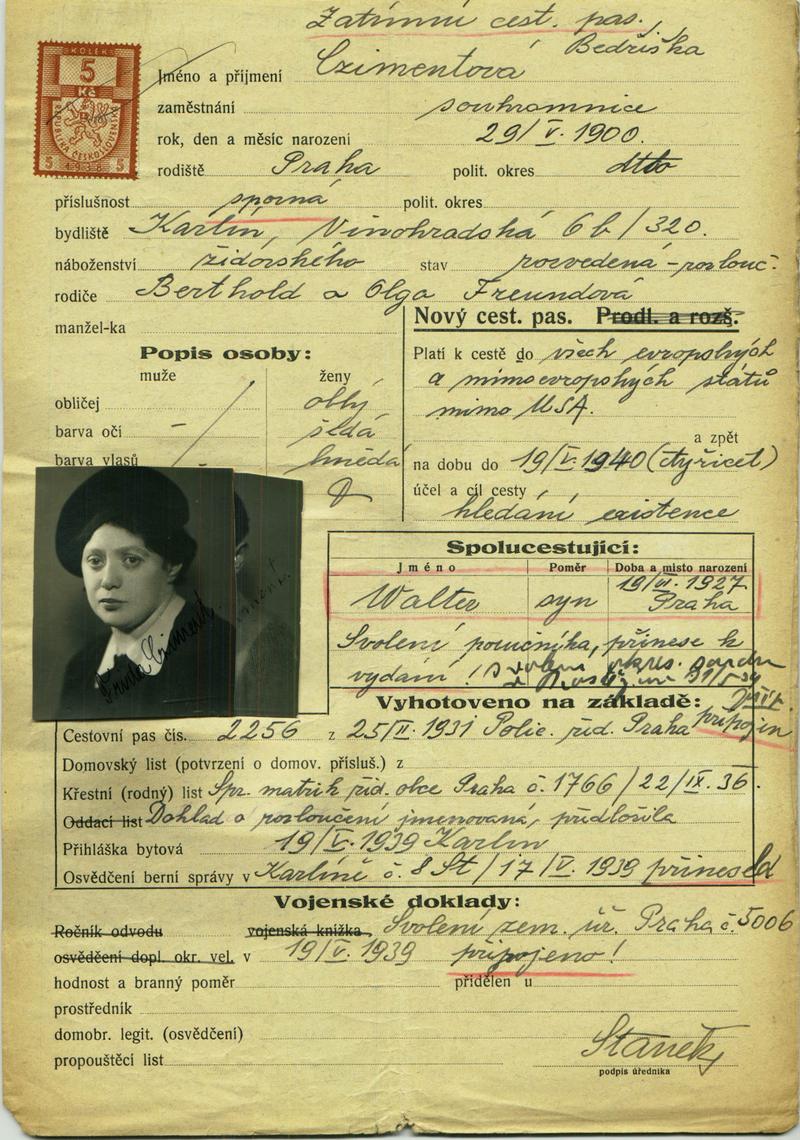 Zatímní cest. pas.
KOLEK
5
Kč
REPUBLIKA ČESKOSLOVENSKÁ
5 1938 5
Jméno a příjmení Czimentová Bedřiška
zaměstnání soukromnice
rok, den a měsíc narození 29/V. 1900.
rodiště Praha polit. okres dtto
příslušnost sporná polit. okres
bydliště Karlín, Vinohradská 6b/320.
náboženství židovského stav rozvedená-rozlouč.
rodiče Berthold a Olga Freundová
manžel-ka
Nový cest. pas. Prodl. a rozš.
Platí k cestě do všech evropských
a mimoevropských států
mimo USA.
a zpět
na dobu do 19/V. 1940 (čtyřicet)
účel a cíl cesty
hledání existence
Popis osoby:
muže ženy
obličej oblý
barva očí – šedá
barva vlasů – hnědá
Spolucestující:
Jméno Poměr Doba a místo narození
Walter syn 19/VI. 1927 Praha
Svolení poručníka, přinese k
vydání! Svolení okres. soudu
připojen
Vyhotoveno na základě:
Cestovní pas čís. 2256 z 25/II. 1931 Polic. řed. Praha
Domovský list (potvrzení o domov. přísluš.) z
Křestní (rodný) list Spr. matrik žid. obce Praha č. 1766/22/IX. 36.
Oddací list Doklad o rozloučení jmenovaná, předložila
Přihláška bytová 19/V. 1939 Karlín
Osvědčení berní správy v Karlíně č. 8 St/17/V. 1939 přinesla
Vojenské doklady:
Ročník odvodu vojenská knížka Svolení zem. úř. Praha č. 5006
osvědčení dopl. okr. vel. v 19/V. 1939 připojeno!
hodnost a branný poměr přidělen u
prostředník
domobr. legit. (osvědčení)
propouštěcí list
Staněk
podpis úředníka